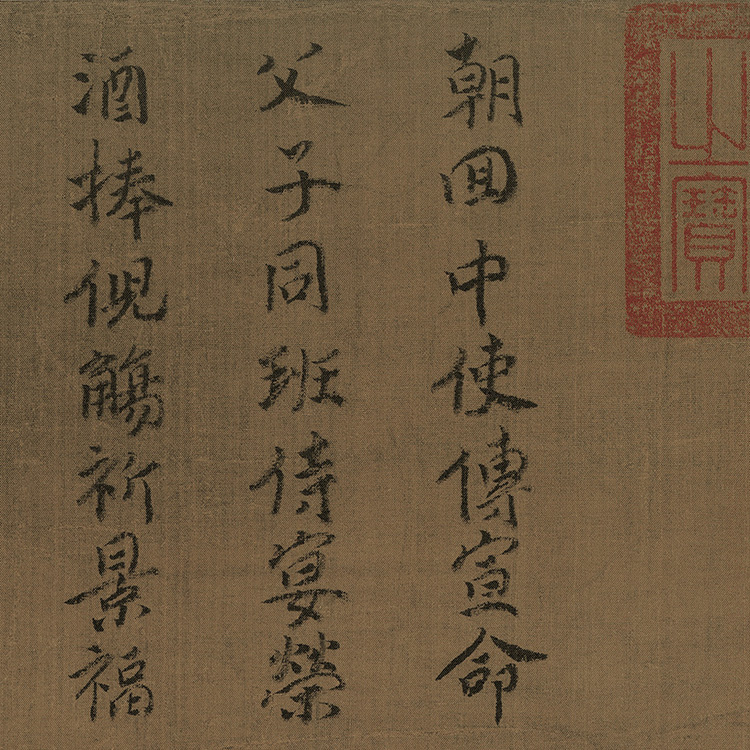 之寶
朝囬中使傳宣命
父子同班侍宴榮
酒捧倪觴祈景福